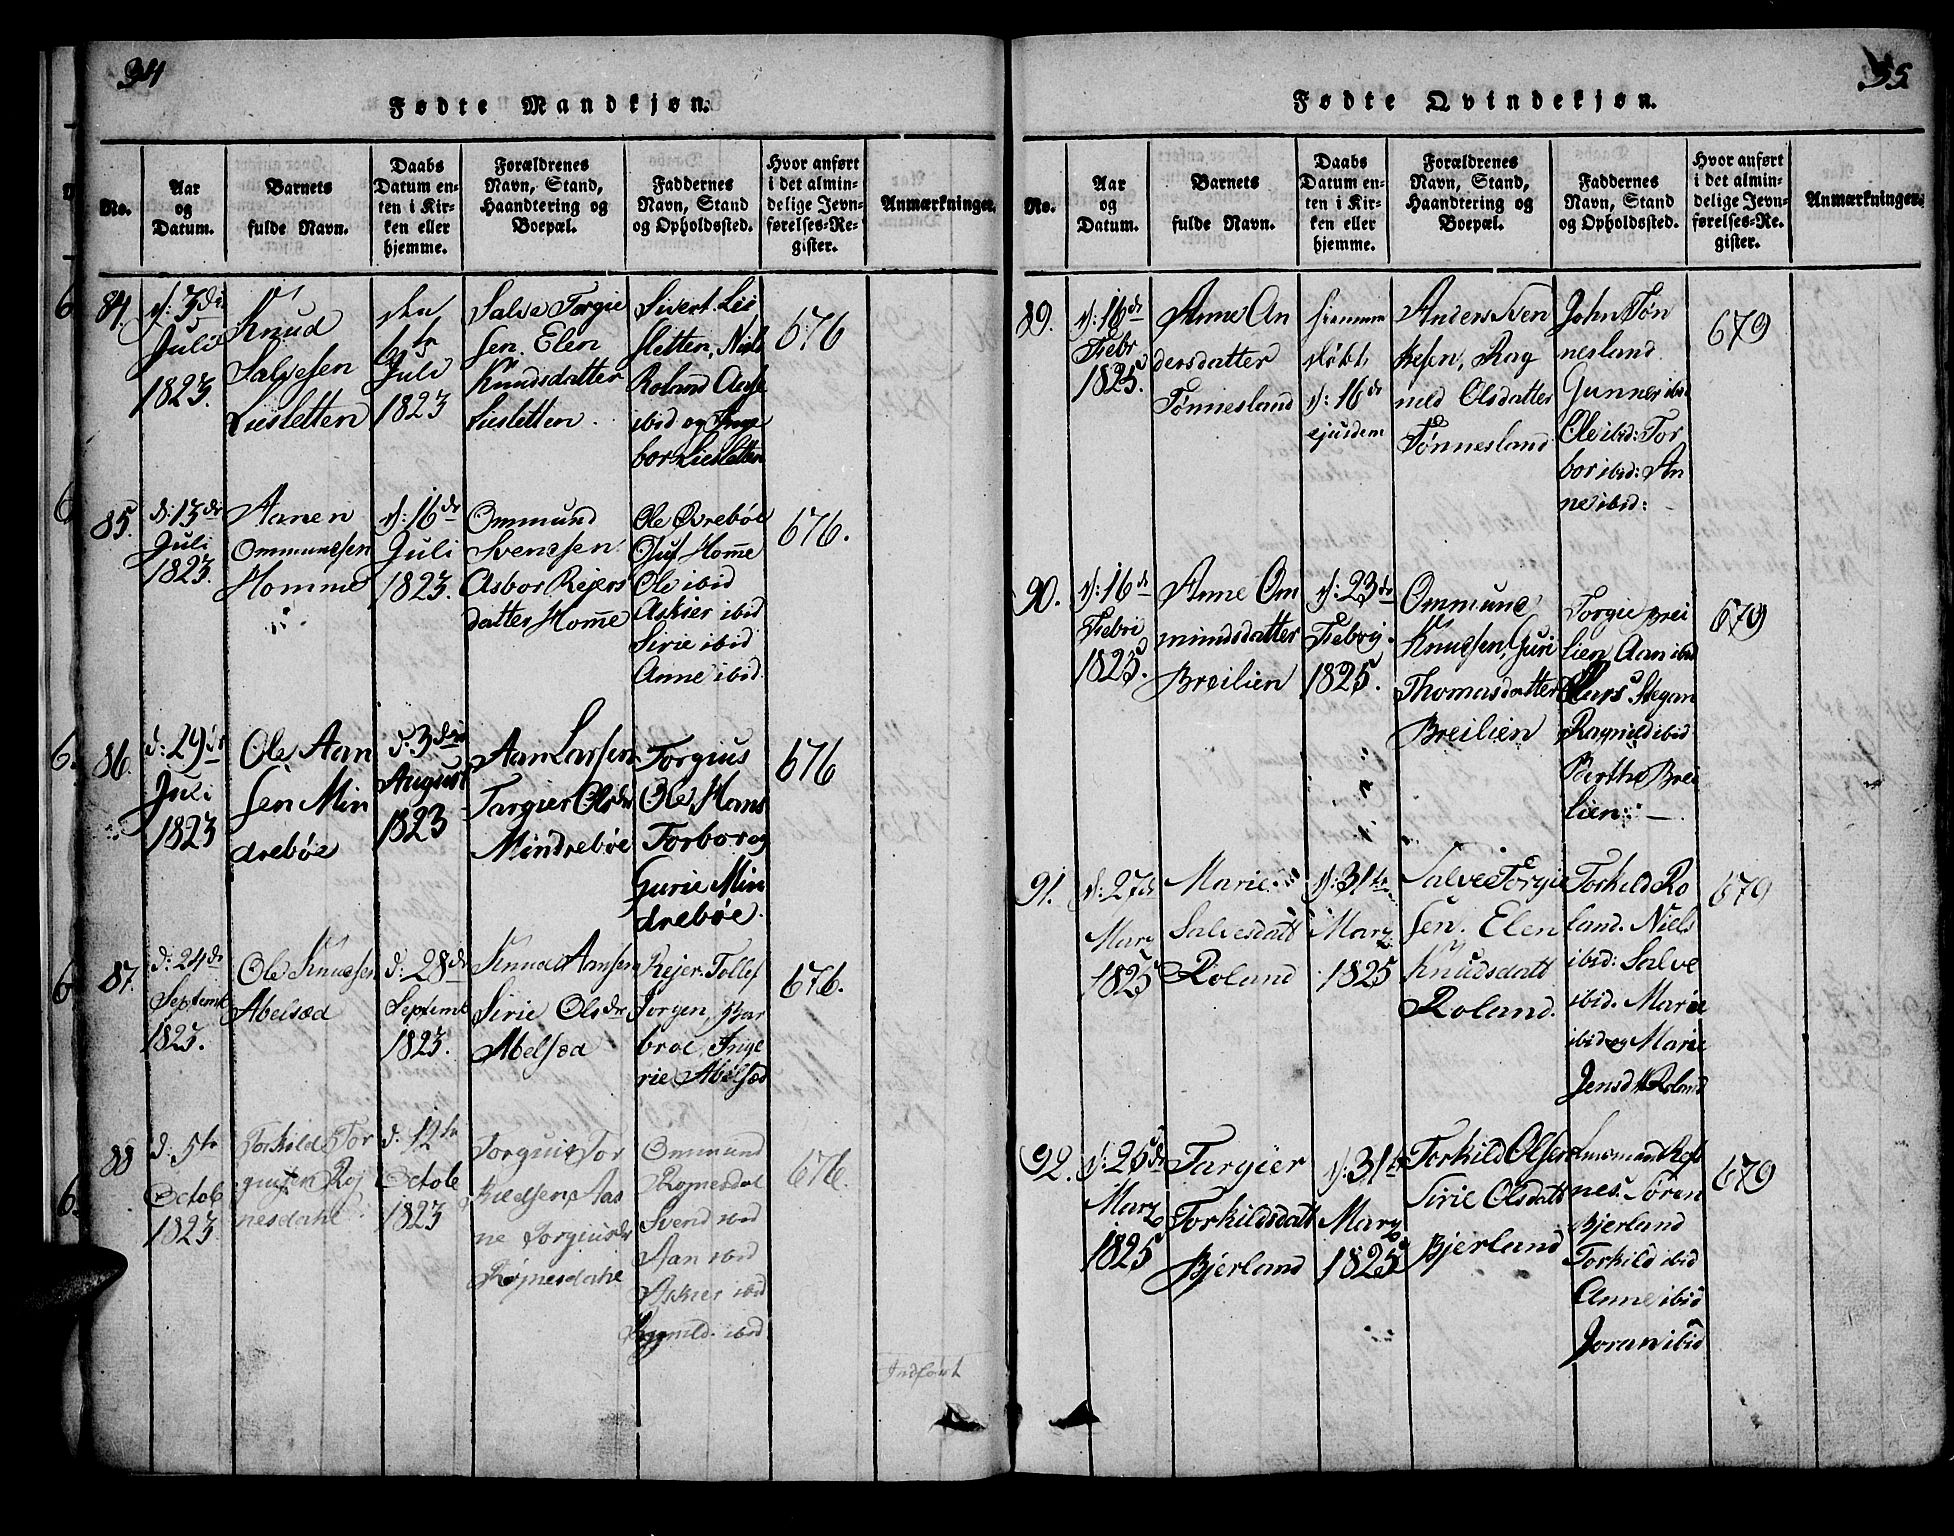 34
Fødte Mandkjøn.
No.
Aar
og
Datum.
Barnets
fulde Navn.
Daabs
Datum en-
ten i Kir-
ken eller
hjemme.
Forældrenes
Navn, Stand,
Haandtering og
Boepæl.
Faddernes
Navn, Stand
og Opholdssted.
Hvor anført
i det almin-
delige Jevn-
førelses-Re-
gister.
Anmærkninger.
84.
d: 3die
Juli
1823.
Knud
Salvesen
Liesletten
den
6te
Juli
1823
Salve Torgie
sen. Elen
Knudsdatter
Liesletten.
Sivert Lie
sletten, Niels
Roland Aase
ibid og Inge
bor Liesletten
676
85.
d: 13de
Juli
1823.
Aanen
Ommundsen
Homme
d: 16de
Juli
1823.
Ommund
Svensen
Asbor Rejers
datter Home
Ole Øvrebøe
Ole ibid
Askier ibid
Sirie ibid
Anne ibid.
676.
86.
d: 29de
Juli
1823
Ole Aan
sen Min
drebøe
d: 3die
August
1823
Aan Larsen
Targier Olsdr
Mindrebøe
Torgius
Ole, Hans
Torbor og
Gurie Min
drebøe.
676
87.
d: 24de
Septemb
1823.
Ole Knudsen
Abelsæd
d: 28de
Septemb
1823.
Knud Aansen
Sirie Olsdr
Abelsæd
Rejer, Tollef
Jorgen, Bar
broe, Inge
rie Abelsæd
676.
88
d: 5te
Octob
1823
Torkild Tor
giusen Røj
nesdahl
d: 12te
Octob
1823
Torguis Tor
kildsen, Aa
ne Torgiusdr
Røjnesdahl
Ommund
Rojnesdal
Svend ibid
Aan ibid
Askier ibid
Ragnild. ibid
676.
Indført
35
Fødte Qvindekjøn.
No.
Aar
og
Datum.
Barnets
fulde Navn.
Daabs
Datum en-
ten i Kir-
ken eller
hjemme.
Forældrenes
Navn, Stand,
Haandtering og
Boepæl.
Faddernes
Navn, Stand
og Opholdssted.
Hvor anført
i det almin-
delige Jevn-
førelses-Re-
gister.
Anmærkninger.
89.
d: 16de
Febr
1825.
Anne An
dersdatter
Tønnesland
hjemme
døbt
d: 16de
ejusdem
Anders Sven
kesen, Rag
nild Olsdatter
Tønnesland
John Tøn
nesland
Gunner ibid
Ole ibid: Tor
bor ibid: An
ne ibid:
679
90.
d: 16de
Febr
1825.
Anne Om
mundsdatter
Breilien
d: 23de
Febr
1825.
Ommund
Knudsen, Guri
Thomasdatter
Breilien
Torgie Brei
lien Aan ibid
Lars Stegan
Ragnild ibid
Berthe Brei
lien:
679
91.
d: 27de
Marz
1825
Marie
Salvesdatt
Roland
d: 31te
Marz
1825
Salve Torgie
sen. Elen
Knudsdatt
Roland.
Torkild Ro
land. Niels
ibid: Salve
ibid. Marie
ibid og Marie
Jensdtt Roland
679
92.
d: 25de
Marz
1825
Targier
Torkildsdatt
Bjerland
d: 31te
Marz
1825
Torkild Olsen
Sirie Olsdatt
Bjerland
nes. Søren
Bjerland
Torkild ibid
Anne ibid
Joran ibid
679